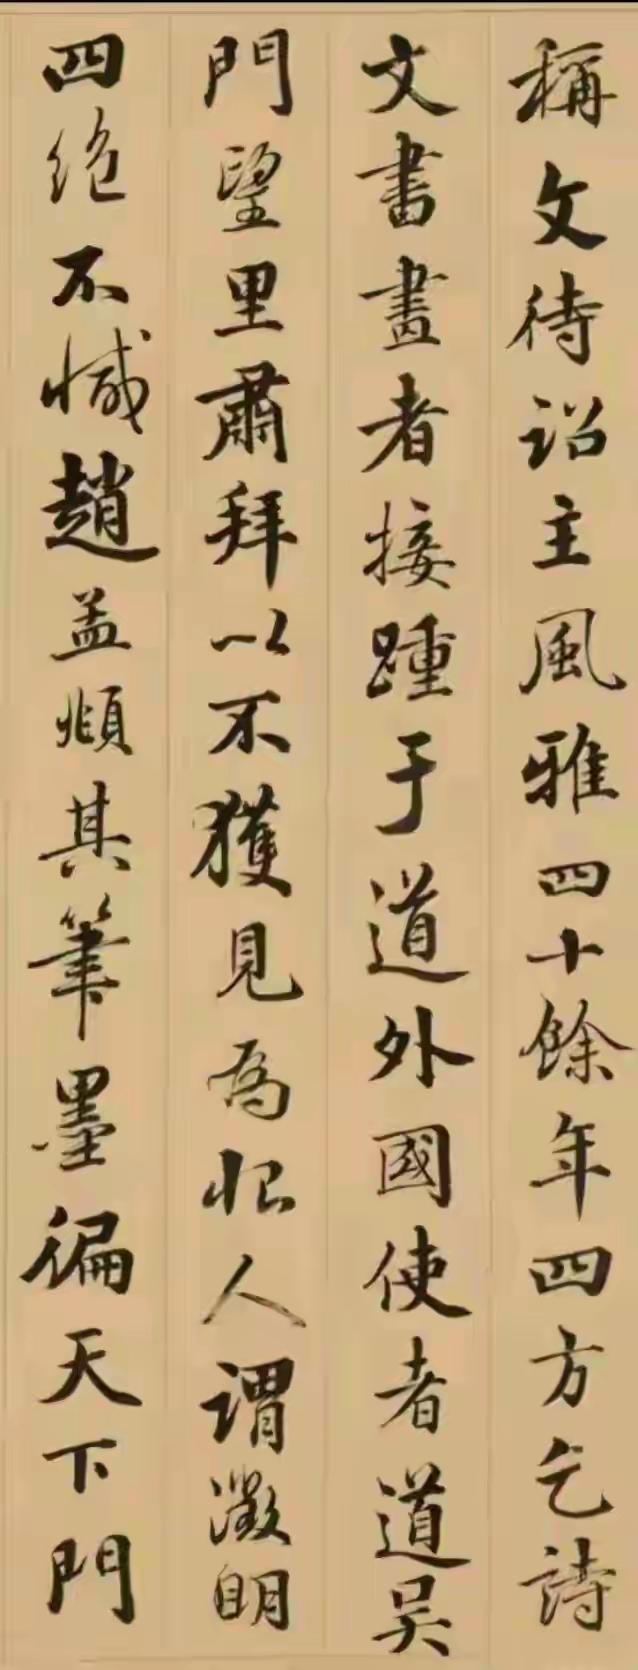 稱文待詔主風雅四十餘年四方乞詩
文書畫者接踵于道外國使者道吴
門望里肅拜以不獲見為恨人謂澂明
四絶不憾趙孟頫其筆墨徧天下門